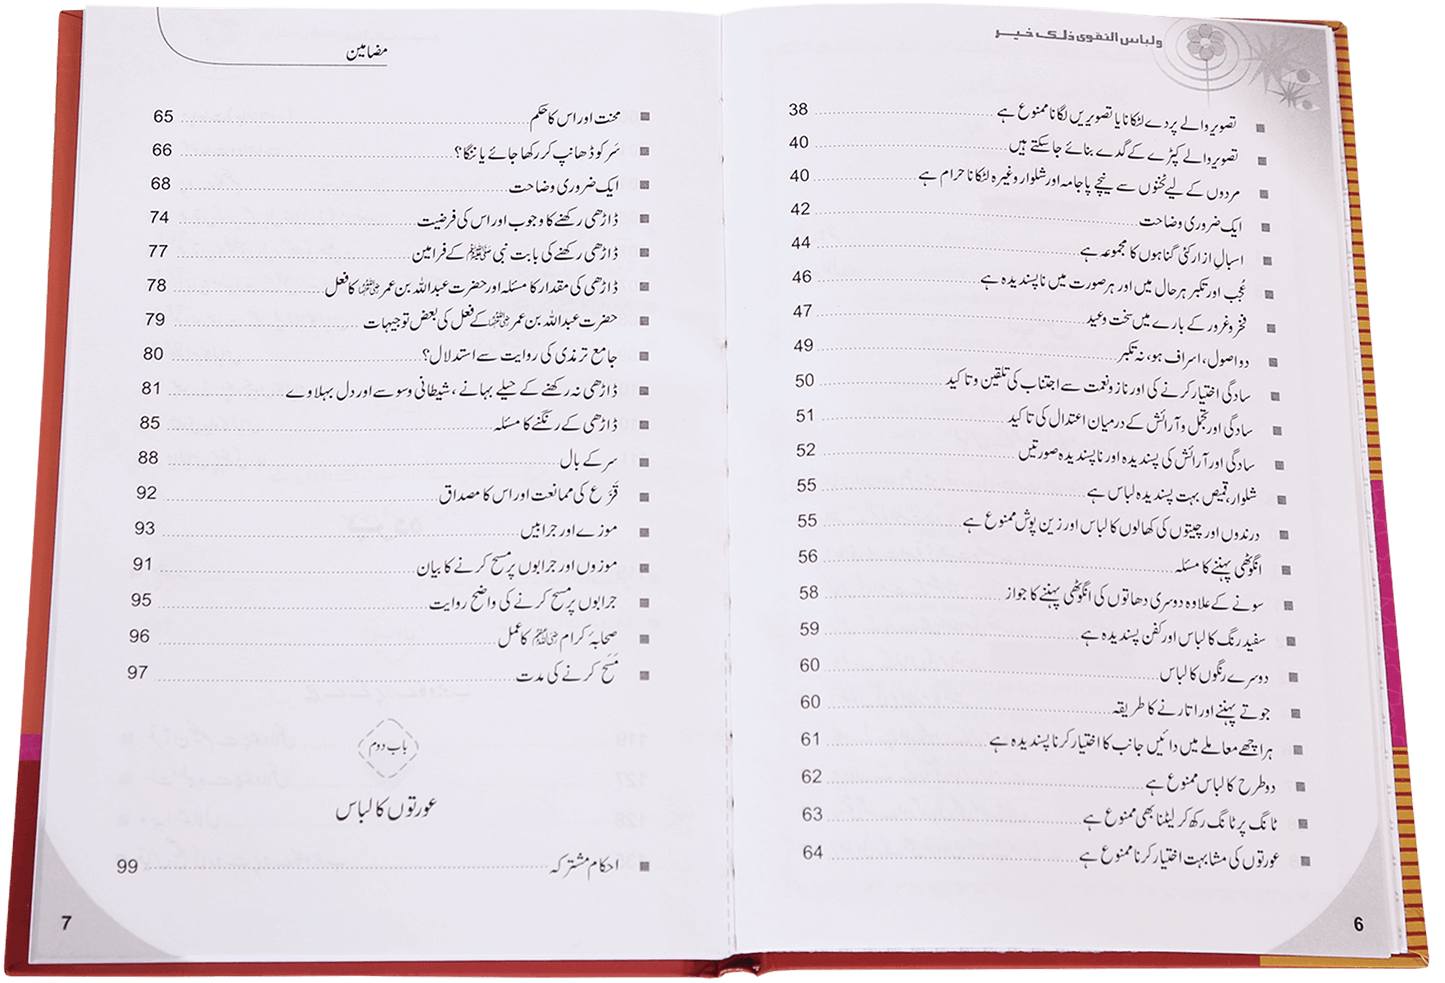 ولباس التقوى ذلك خير
تصویر والے پردے لٹکانا یا تصویریں لگانا ممنوع ہے 38
تصویر والے کپڑے کے گدے بنائے جاسکتے ہیں 40
مردوں کے لیے ٹخنوں سے نیچے پاجامہ اور شلوار وغیرہ لٹکانا حرام ہے 40
ایک ضروری وضاحت 42
اسبالِ ازار کئی گناہوں کا مجموعہ ہے 44
عُجب اور تکبر ہر حال میں اور ہر صورت میں ناپسندیدہ ہے 46
فخر و غرور کے بارے میں سخت وعید 47
دو اصول، اسراف ہو، نہ تکبر 49
سادگی اختیار کرنے کی اور ناز و نعمت سے اجتناب کی تلقین و تاکید 50
سادگی اور تجمل و آرائش کے درمیان اعتدال کی تاکید 51
سادگی اور آرائش کی پسندیدہ اور ناپسندیدہ صورتیں 52
شلوار، قمیص بہت پسندیدہ لباس ہے 55
درندوں اور چیتوں کی کھالوں کا لباس اور زین پوش ممنوع ہے 55
انگوٹھی پہننے کا مسئلہ 56
سونے کے علاوہ دوسری دھاتوں کی انگوٹھی پہننے کا جواز 58
سفید رنگ کا لباس اور کفن پسندیدہ ہے 59
دوسرے رنگوں کا لباس 60
جوتے پہننے اور اتارنے کا طریقہ 60
ہر اچھے معاملے میں دائیں جانب کا اختیار کرنا پسندیدہ ہے 61
دو طرح کا لباس ممنوع ہے 62
ٹانگ پر ٹانگ رکھ کر لیٹنا بھی ممنوع ہے 63
عورتوں کی مشابہت اختیار کرنا ممنوع ہے 64
6
مضامین
مخنث اور اس کا حکم 65
سَر کو ڈھانپ کر رکھا جائے یا ننگا؟ 66
ایک ضروری وضاحت 68
ڈاڑھی رکھنے کا وجوب اور اس کی فرضیت 74
ڈاڑھی رکھنے کی بابت نبی ﷺ کے فرامین 77
ڈاڑھی کی مقدار کا مسئلہ اور حضرت عبداللہ بن عمر رضی اللہ عنہما کا فعل 78
حضرت عبداللہ بن عمر رضی اللہ عنہما کے فعل کی بعض توجیہات 79
جامع ترمذی کی روایت سے استدلال؟ 80
ڈاڑھی نہ رکھنے کے حیلے بہانے، شیطانی وسوسے اور دل بہلاوے 81
ڈاڑھی کے رنگنے کا مسئلہ 85
سر کے بال 88
قَزَع کی ممانعت اور اس کا مصداق 92
موزے اور جرابیں 93
موزوں اور جرابوں پر مسح کرنے کا بیان 91
جرابوں پر مسح کرنے کی واضح روایت 95
صحابۂ کرام ﷺ کا عمل 96
مَسح کرنے کی مدت 97
باب دوم
عورتوں کا لباس
احکام مشترکہ 99
7